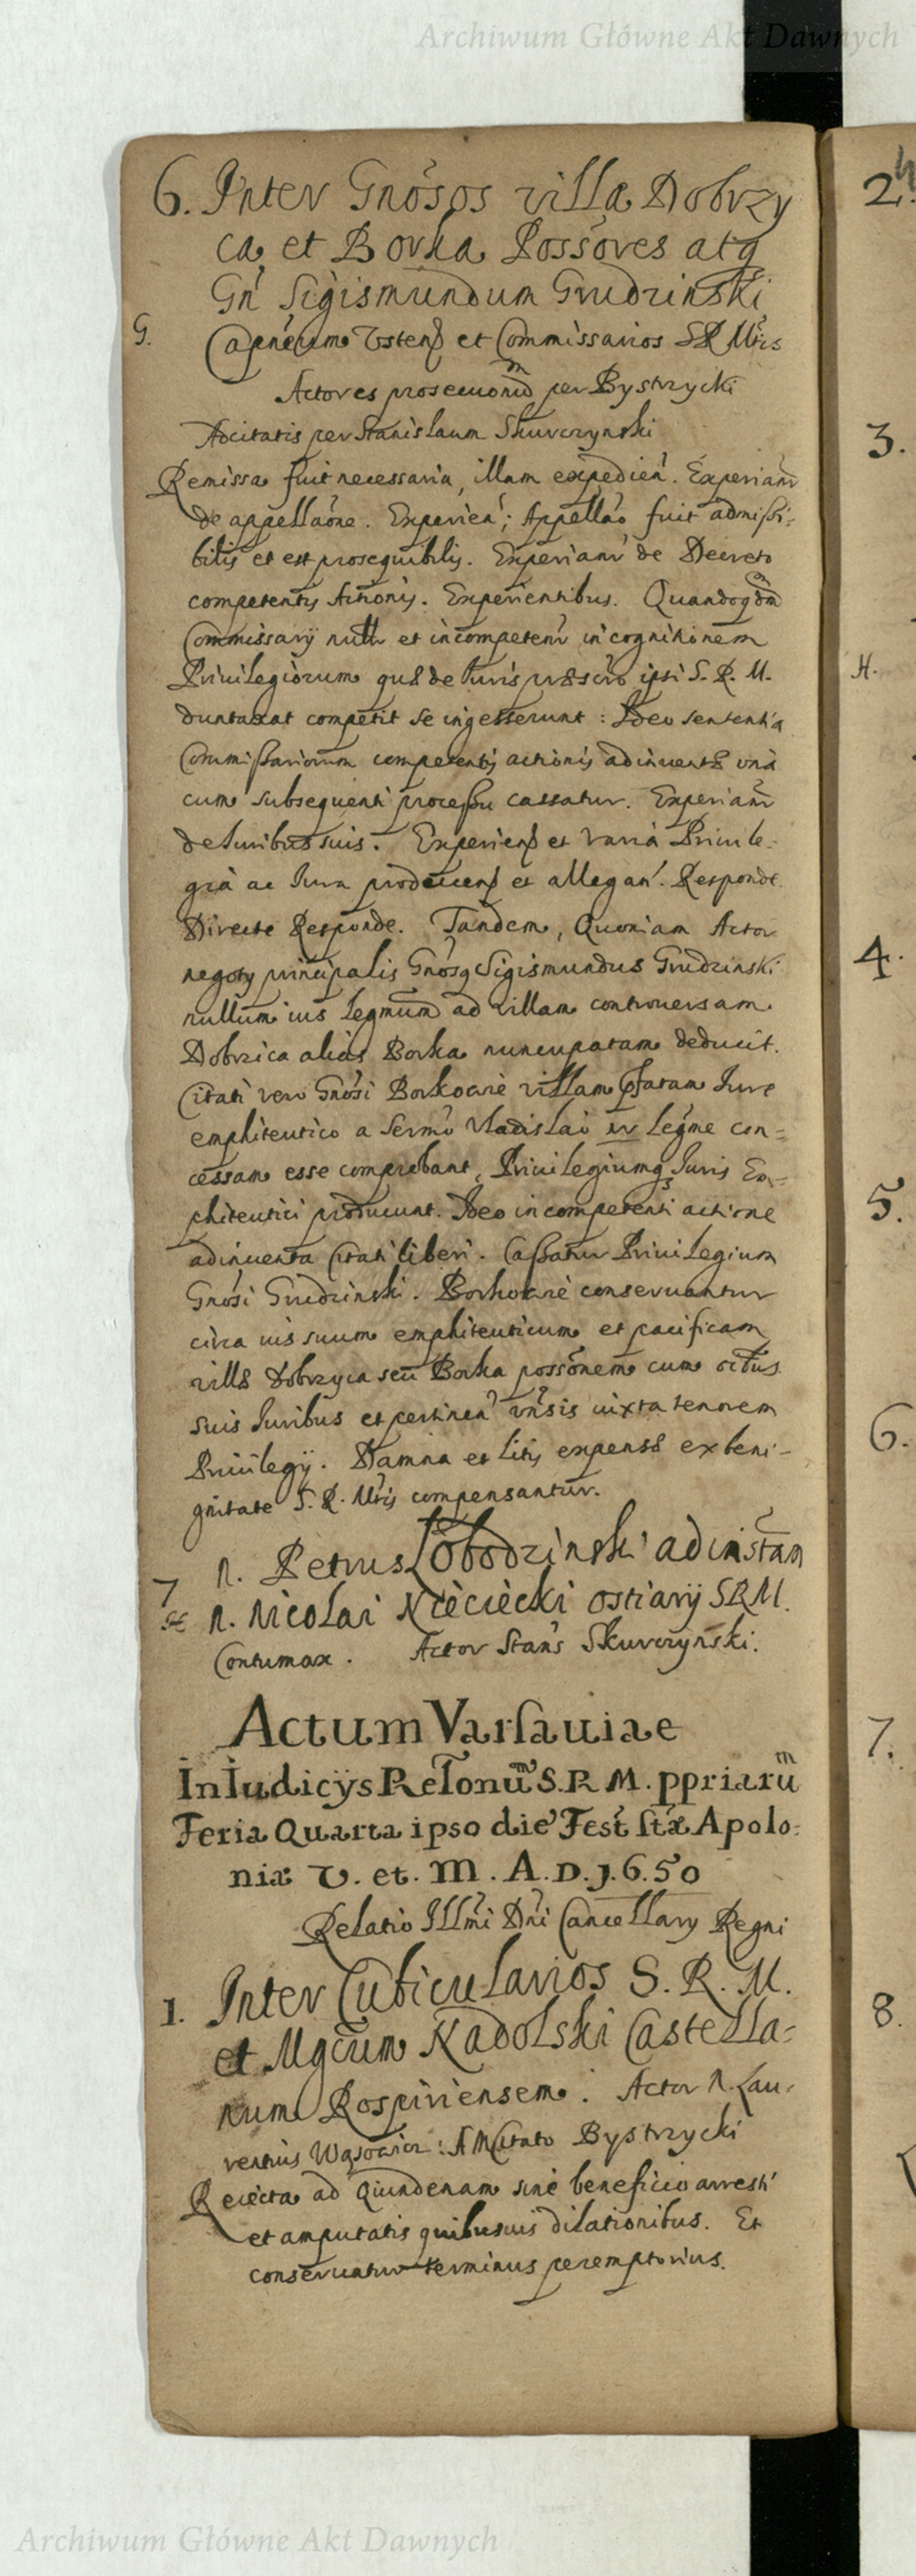 Archiwum Główne Akt Dawnych
6. Inter Gnosos villæ Dobrzy
ca et Borka Possores atq
Gn Sigismundum Grudzinski
G. Capneum Usten et Commissarios S R Mtis
Actores prosecuond per Bystrzycki
Adcitatis per Stanislaum Skurczynski
Remissa fuit necessaria, illam expedien. Experianr
de appellaone. Experien; Appellao fuit admissi-
bilis et est prosequibilis. Experianr de Decreto
competentis Actionis. Experientibus. Quandoqdm
Commissarij null et incompetenr in cognitionem
Priuilegiorum quæ de Iuris præscro ipsi S. R. M.
duntaxat competit se ingesserunt: Ideo sententia
Commissariorum competentis actionis adinuentæ una
cum subsequenti processu cassatur. Experianr
de Iuribus suis. Experien et varia Priuile-
gia ac Iura producen et allegan. Responde.
Directe Responde. Tandem, Quoniam Actor
negoty principalis Gnosq Sigismundus Grudzinski
nullum ius legmum ad villam controuersam
Dobrzica alias Borka nuncupatam deducit.
Citati vero Gnosi Borkowie villam pfatam Iure
emphiteutico a Sermo Vladislao iv legme con-
cessam esse comprobant, Priuilegiumq Iuris Em-
phiteutici producunt. Ideo incompetenti actione
adinuenta Citati liberi. Cassatur Priuilegium
Gnosi Grudzinski. Borkowie conseruantur
circa ius suum emphiteuticum et pacificam
villæ Dobrzyca seu Borka possonem cum oibus
suis Iuribus et pertinen vnsis iuxta tenorem
Priuilegij. Damna et litis expensæ ex beni-
gnitate S. R. Mtis compensantur.
7 N. Petrus Łobodzinski ad instan
N. Nicolai Nieciecki Ostiarij SRM.
Contumax. Actor Stans Skurczynski.
Actum Varsauiae
In Iudicijs Relonum S. R M. ppriarum
Feria Quarta ipso die Fest stæ Apolo-
niæ V. et. M. A. D. 1.6.50
Relatio Illmi Dni Cancellary Regni
1. Inter Cubicularios S. R. M.
et Mgcum Nadolski Castella-
num Rospiriensem. Actor N. Lau-
rentius Wąsowicz: A M Citato Bystrzycki
Reiecta ad Quindenam sine beneficio arresti
et amputatis quibusuis dilationibus. Et
conseruatur terminus peremptorius.
2
3.
H.
4.
5.
6.
7.
8.
Archiwum Główne Akt Dawnych